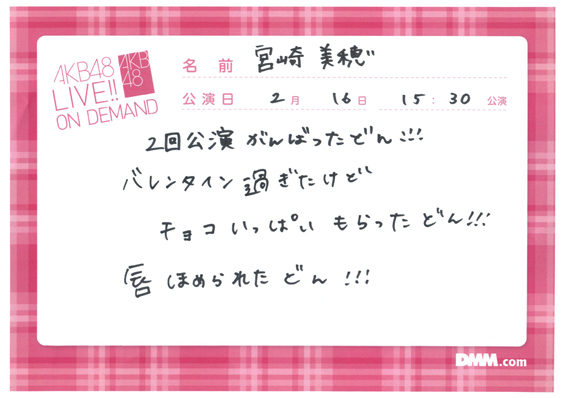 AKB48
LIVE!!
ON DEMAND
AKB
48
名前 宮崎 美穂
公演日 2月 16日 15:30 公演
2回公演 がんばったどん!!!
バレンタイン 過ぎたけど
チョコ いっぱい もらった どん!!!
唇 ほめられた どん !!!
DMM.com